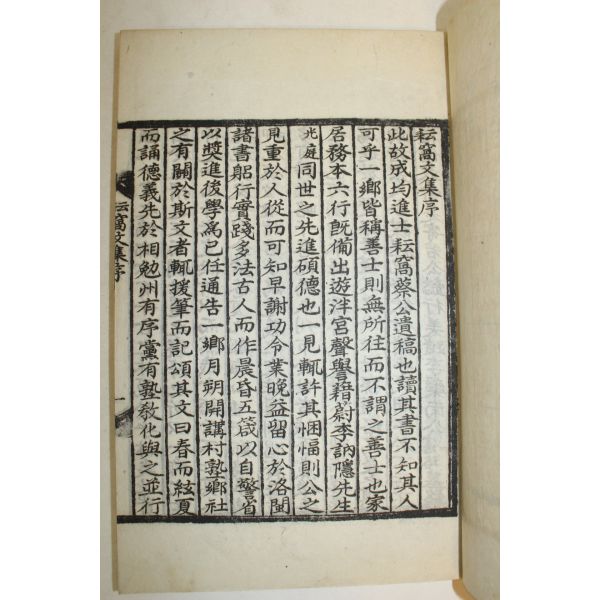 耘窩文集序
此故成均進士耘窩蔡公遺稿也讀其書不知其人
可乎一鄕皆稱善士則無所往而不謂之善士也家
居務本六行旣備出遊泮宮聲譽藉蔚李訥隱先生
光庭同世之先進碩德也一見輒許其悃愊則公之
見重於人從而可知早謝功令業晩益留心於洛閩
諸書躬行實踐多法古人而作晨昏五箴以自警省
以奬進後學爲己任通告一鄕月朔開講村塾鄕社
之有關於斯文者輒援筆而記頌其文曰春而絃夏
而誦德義先於相勉州有序黨有塾敎化與之並行
耘窩文集序
一